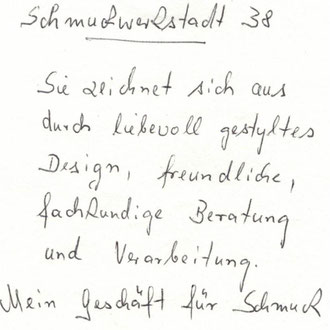 Schmuckwerkstadt 38
Sie zeichnet sich aus
durch liebevoll gestyltes
Design, freundliche,
fachkundige Beratung
und Verarbeitung.
Mein Geschäft für Schmuck